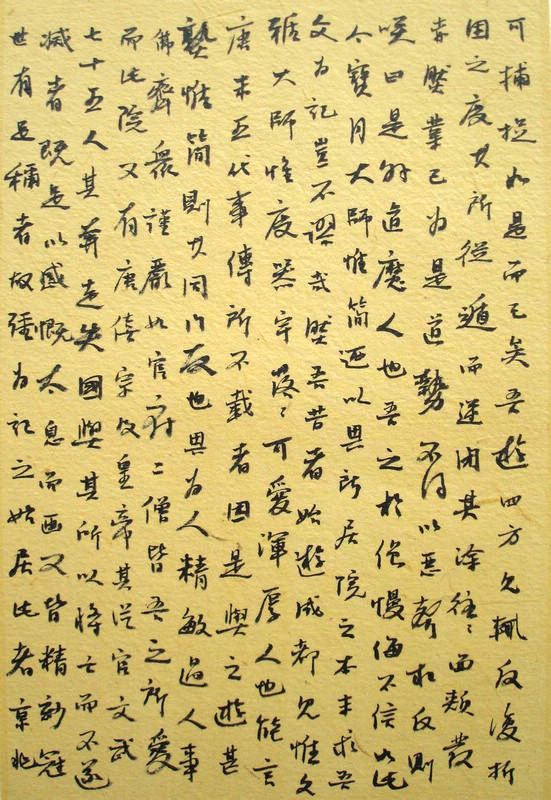 可捕捉如是而已矣吾遊四方見輒反復折
困之度其所從遁而逆閉其塗往々面頰發
赤然業已為是道勢不得以惡聲相反則
笑曰是外道魔人也吾之於僧慢侮不信如此
今寶月大師惟簡迺以其所居院之本末求吾
文為記豈不謬哉然吾昔者始遊成都見惟文
雅大師惟度器宇落々可愛渾厚人也能言
唐末五代事傳所不載者因是與之遊甚
熟惟簡則其同門友也其為人精敏過人事
佛齊眾謹嚴如官府二僧皆吾之所愛
而此院又有唐僖宗及皇帝其從官文武
七十五人其奔走失國與其所以將亡而不遂
滅者既足以感慨太息而画又皆精妙冠
世有足稱者故強為記之始居此者京兆